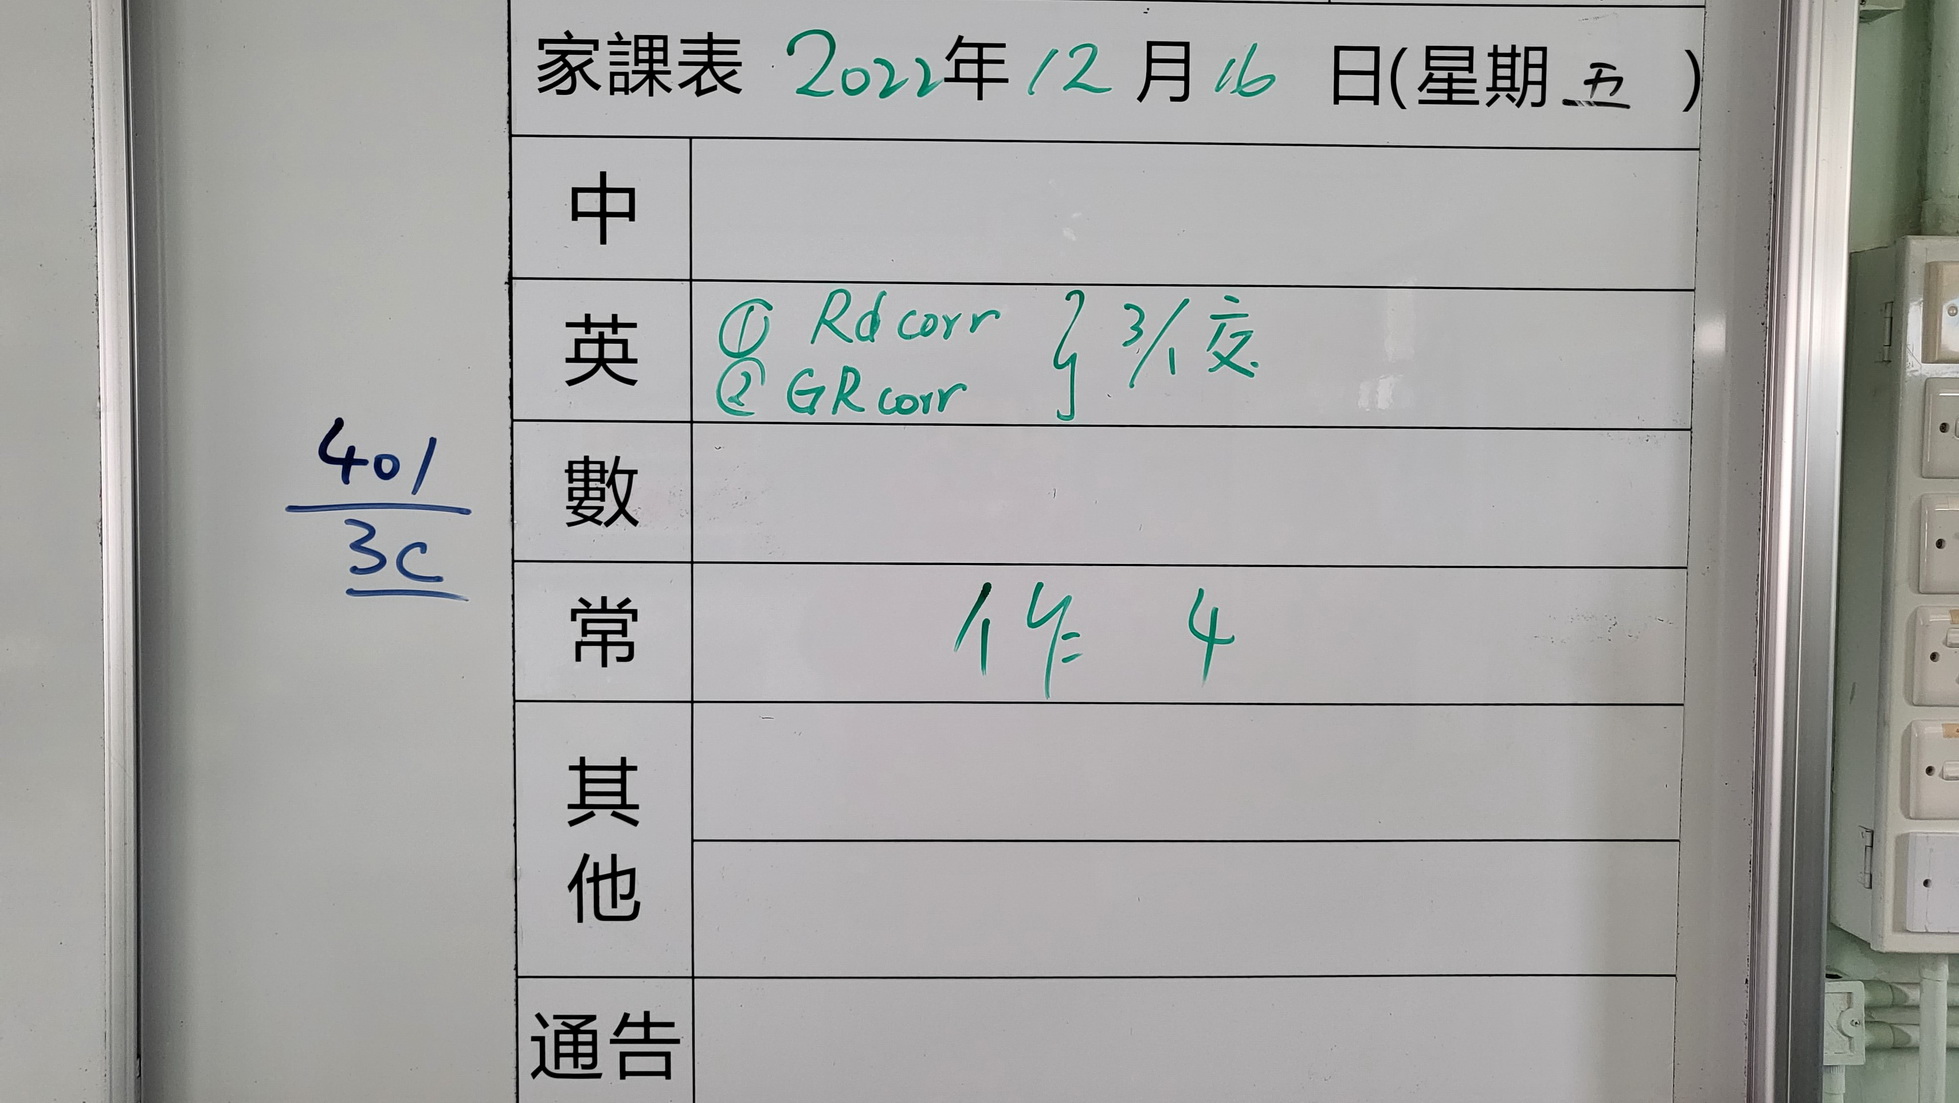 家課表 2022年 12月 16日(星期五)
中
英 ① Rd corr } 3/1 交
② GR corr
數
401
3C
常 作 4
其他
通告